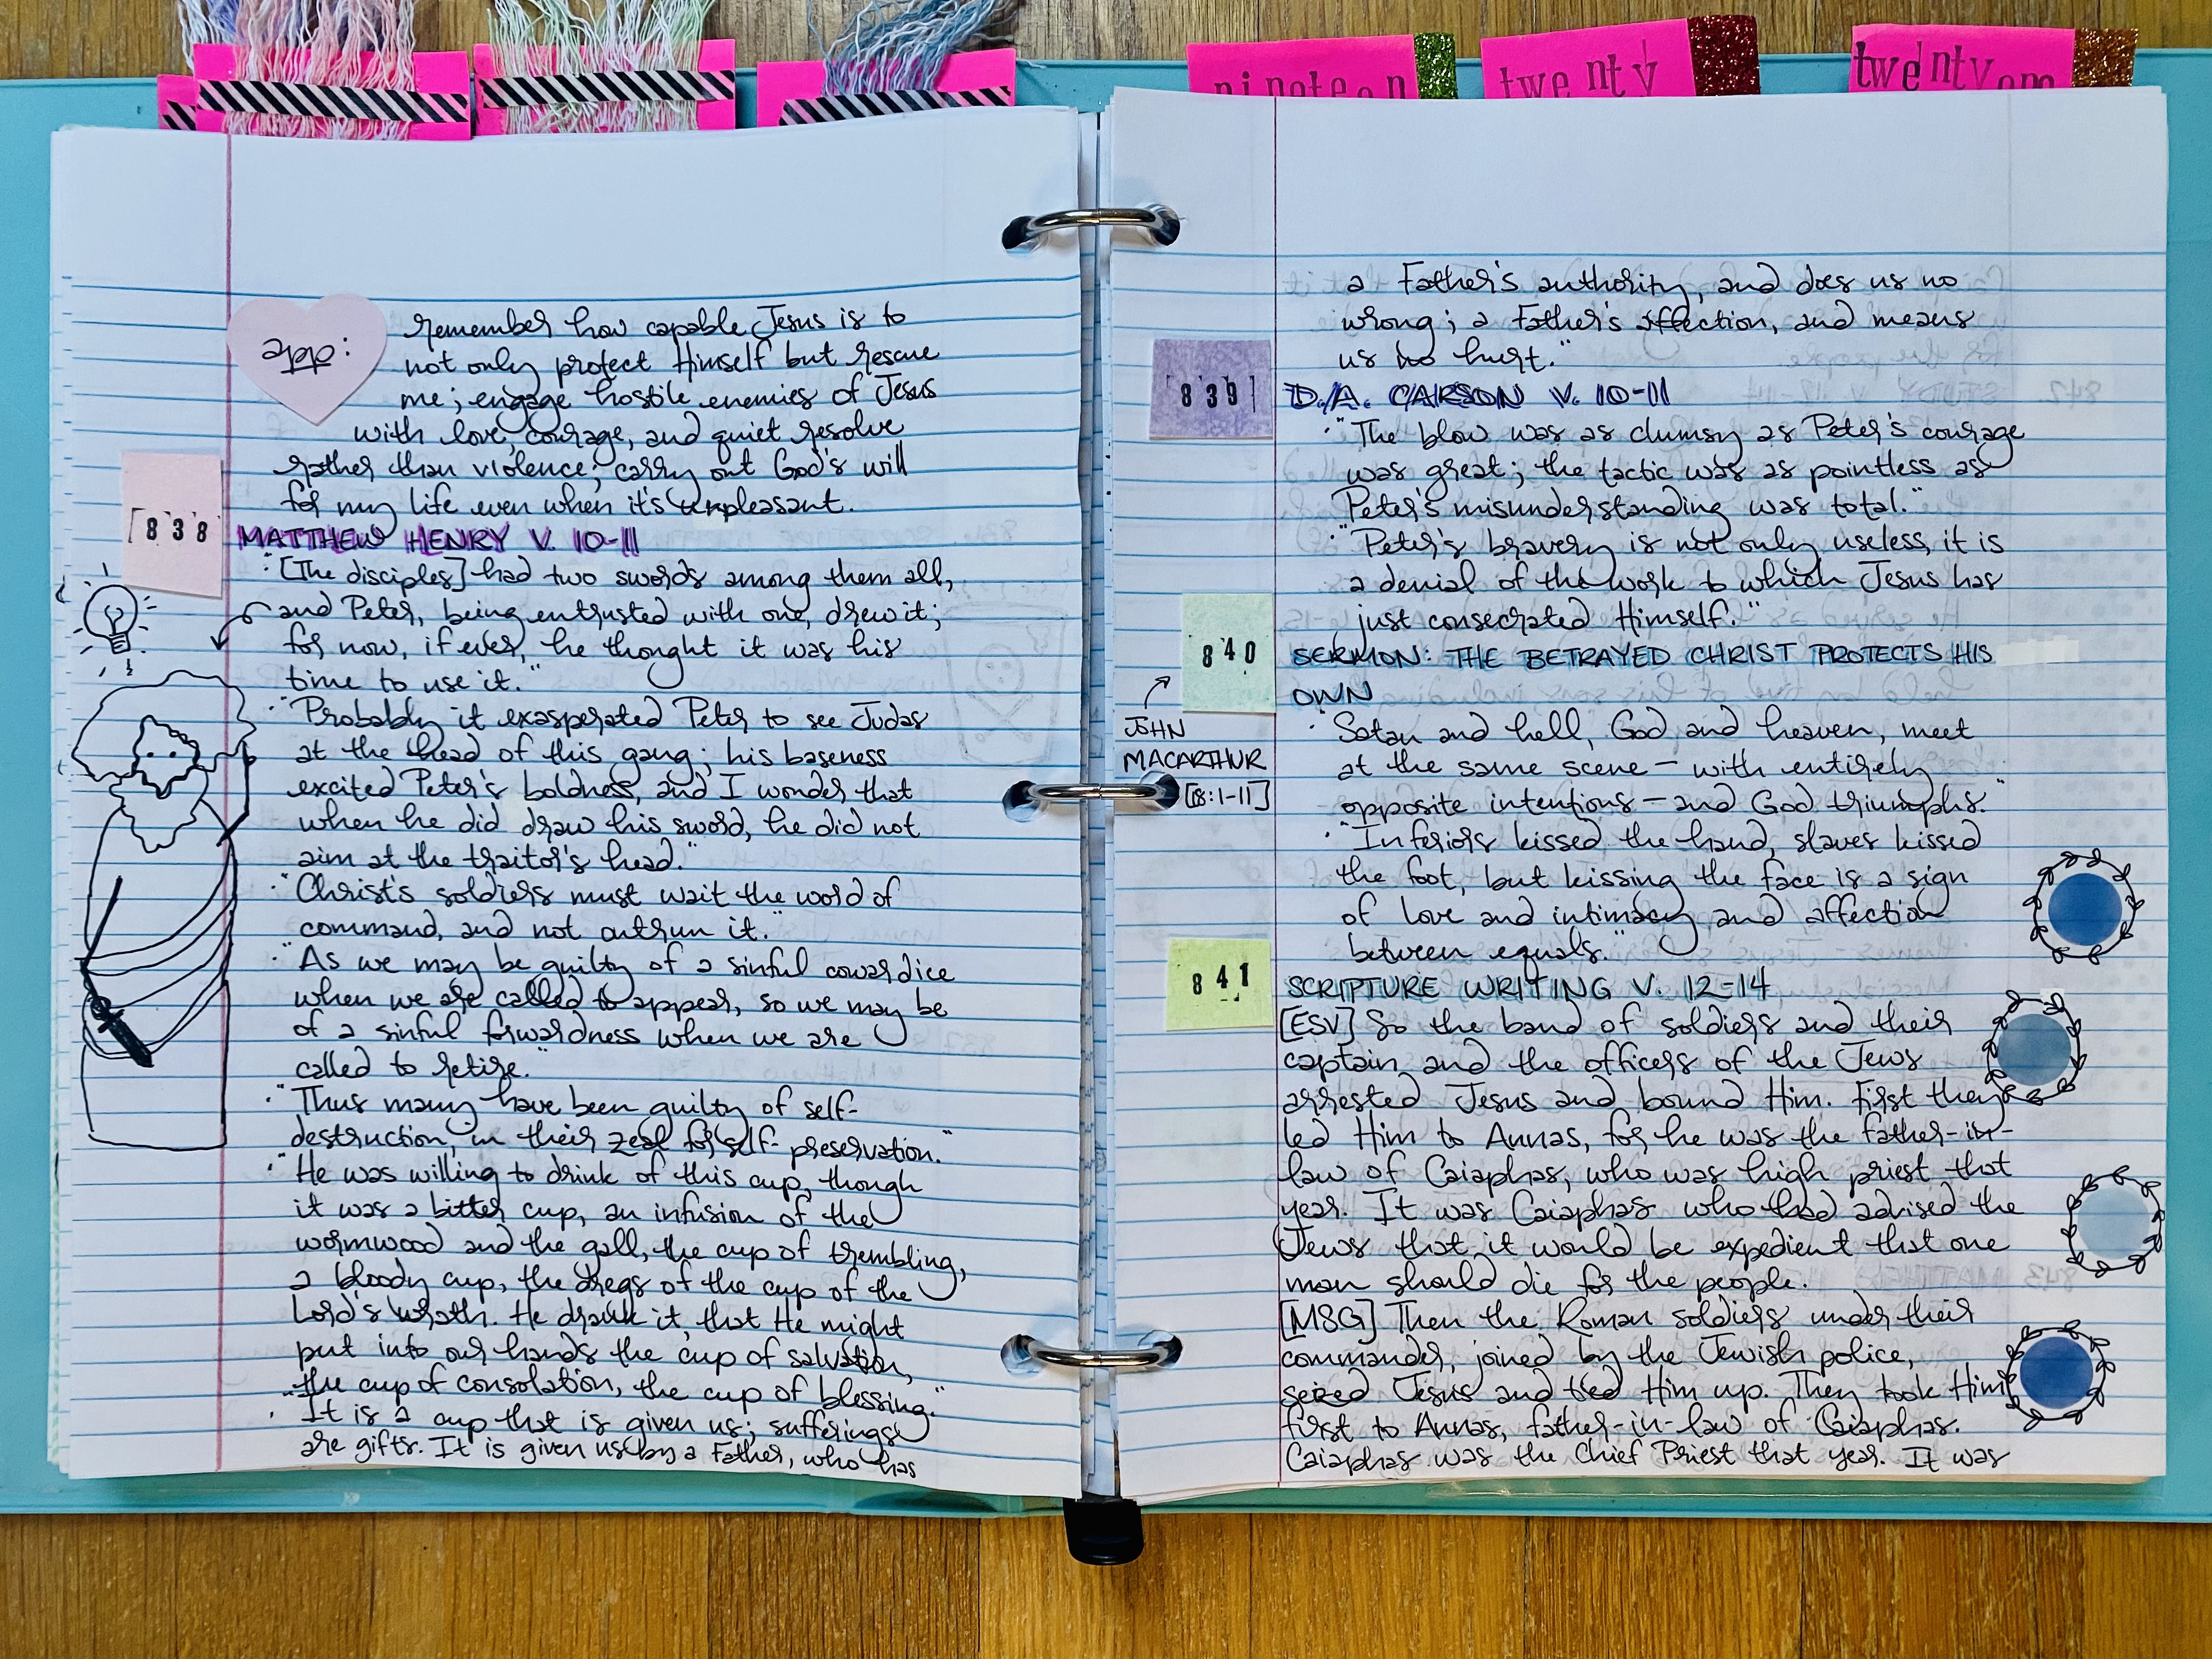 nineteen
twenty
twenty one
app:
remember how capable Jesus is to
not only protect Himself but rescue
me; engage hostile enemies of Jesus
with love, courage, and quiet resolve
rather than violence; carry out God's will
for my life even when it's unpleasant.
838
MATTHEW HENRY V. 10-11
·"[The disciples] had two swords among them all,
and Peter, being entrusted with one, drew it;
for now, if ever, he thought it was his
time to use it."
·"Probably it exasperated Peter to see Judas
at the head of this gang; his baseness
excited Peter's boldness, and I wonder that
when he did draw his sword, he did not
aim at the traitor's head."
·"Christ's soldiers must wait the word of
command, and not outrun it."
·"As we may be guilty of a sinful cowardice
when we are called to appear, so we may be
of a sinful forwardness when we are
called to retire."
·"Thus many have been guilty of self-
destruction, in their zeal for self-preservation."
·"He was willing to drink of this cup, though
it was a bitter cup, an infusion of the
wormwood and the gall, the cup of trembling,
a bloody cup, the dregs of the cup of the
Lord's wrath. He drank it, that He might
put into our hands the cup of salvation,
the cup of consolation, the cup of blessing."
·"It is a cup that is given us; sufferings
are gifts. It is given us by a Father, who has
a Father's authority, and does us no
wrong; a Father's affection, and means
us no hurt."
839
D.A. CARSON V. 10-11
·"The blow was as clumsy as Peter's courage
was great; the tactic was as pointless as
Peter's misunderstanding was total."
·"Peter's bravery is not only useless, it is
a denial of the work to which Jesus has
just consecrated Himself."
840
SERMON: THE BETRAYED CHRIST PROTECTS HIS
OWN
JOHN
MACARTHUR
[18:1-11]
·"Satan and hell, God and heaven, meet
at the same scene — with entirely
opposite intentions — and God triumphs."
·"Inferiors kissed the hand, slaves kissed
the foot, but kissing the face is a sign
of love and intimacy and affection
between equals."
841
SCRIPTURE WRITING V. 12-14
[ESV] So the band of soldiers and their
captain and the officers of the Jews
arrested Jesus and bound Him. First they
led Him to Annas, for he was the father-in-
law of Caiaphas, who was high priest that
year. It was Caiaphas who had advised the
Jews that it would be expedient that one
man should die for the people.
[MSG] Then the Roman soldiers under their
commander, joined by the Jewish police,
seized Jesus and tied Him up. They took Him
first to Annas, father-in-law of Caiaphas.
Caiaphas was the Chief Priest that year. It was